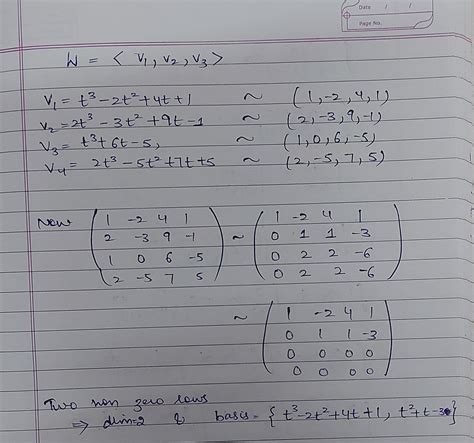 Date / /
Page No.
W = < v₁, v₂, v₃ >
v₁ = t³ - 2t² + 4t + 1 ~ (1, -2, 4, 1)
v₂ = 2t³ - 3t² + 9t - 1 ~ (2, -3, 9, -1)
v₃ = t³ + 6t - 5, ~ (1, 0, 6, -5)
v₄ = 2t³ - 5t² + 7t + 5 ~ (2, -5, 7, 5)
Now ( 1 -2 4 1 ~ ( 1 -2 4 1
2 -3 9 -1 0 1 1 -3
1 0 6 -5 0 2 2 -6
2 -5 7 5 ) 0 2 2 -6 )
~ ( 1 -2 4 1
0 1 1 -3
0 0 0 0
0 0 0 0 )
Two non zero rows
⇒ dim-2 & basis = { t³ - 2t² + 4t + 1, t² + t - 3 }